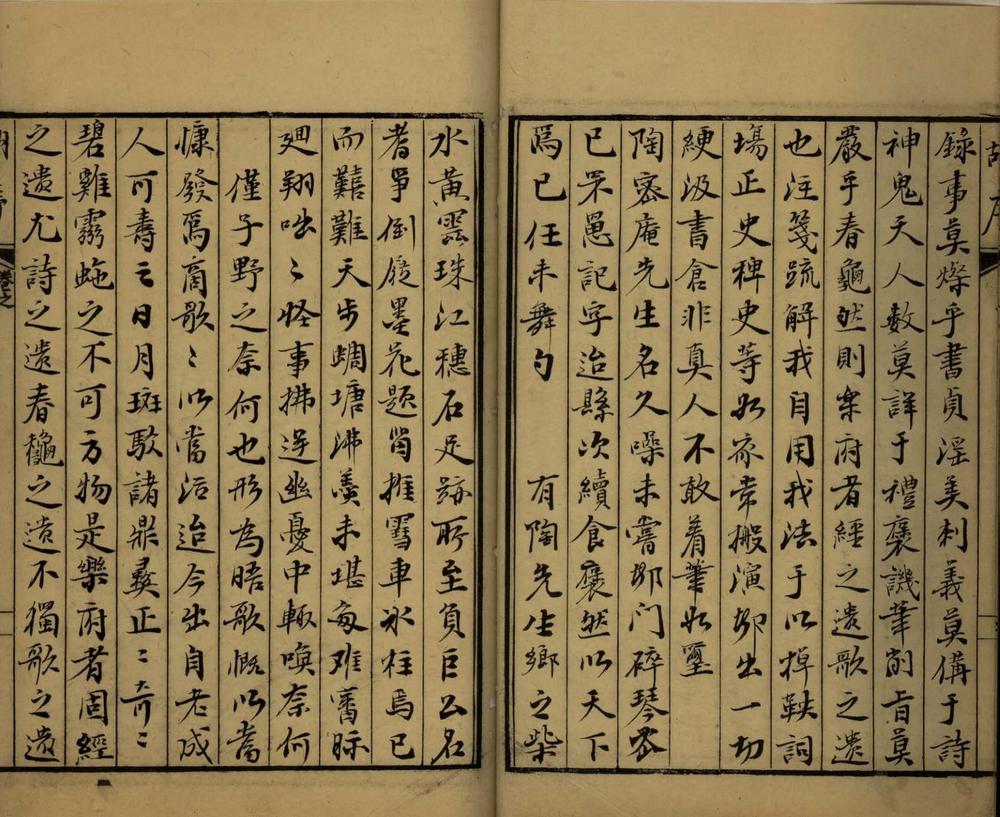 錄事莫燦乎書貞淫美刺義莫備于詩
神鬼天人數莫詳于禮褒譏筆削旨莫
嚴乎春龝然則樂府者經之遺歌之遺
也注箋疏解我自用我法于以掉鞅詞
塲正史稗史等如家常搬演卸出一切
綆汲書倉非真人不敢着筆如壐
陶密庵先生名久噪未嘗卸門碎琴客
已罘罳記字迨縣次續食褒然以天下
爲已任未舞勺　有陶先生鄉之柴
水黃雲珠江穗石足跡所至負巨公名
者爭倒屣墨花題篛推雪車冰柱焉已
而囏難天步蜩螗沸羹未堪每难審眎
廻翔咄〻怪事拂逆幽憂中輒喚奈何
僅子野之奈何也形為晤歌慨以當
慷發爲商歌〻以當泣迨今出自老成
人可壽之日月斑駁諸鼎彝正〻奇〻
碧雞霧虵之不可方物是樂府者固經
之遺尤詩之遺春龝之遺不獨歌之遺
序
卷之